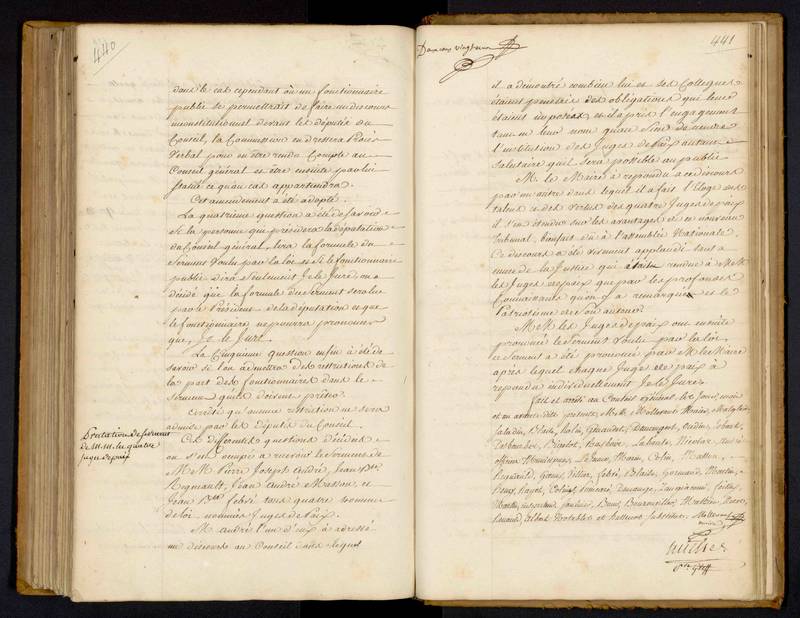 440
dans le cas cependant où un fonctionnaire
public se permettrait de faire un discours
inconstitutionnel devant les députés du
Conseil, la Commission en dressera Procès
Verbal pour en être rendu Compte au
Conseil général et être ensuite par lui
statué ce qu'au cas appartiendra.
Cet amendement a été adopté.
La quatrieme question a été de savoir
si la personne qui présidera la députation
du Conseil général, lira la formule du
Serment Voulu par la loi et si le fonctionnaire
public dira Seulement Je le Jure, on a
décidé que la formule du Serment sera lue
par le Président de la députation et que
le fonctionnaire ne pourra prononcer
que, Je le Jure.
La Cinquieme question enfin a été de
savoir si l'on admettra des restrictions de
la part des fonctionnaires dans le
serment qu'ils doivent prêter.
arrêté qu'aucune restriction ne sera
admise par les députés du Conseil.
Prestation de serment
de M.M. les quatre
juges de paix
Ces différentes questions décidées
on s'est occupé à recevoir le serment de
M.M. Pierre Joseph andré, Jean Bte
Regnault, Jean andré Masson, et
Jean Bte febvé tous quatre hommes
de loi nommés Juges de Paix.
M. andré l'un d'eux a adressé
un discours au Conseil dans lequel
Deux cent vingt un
441
il a démontré combien lui et ses Collegues
étaient penetrés des obligations qui leur
étaient imposées et il a pris l'engagement
tant en leur nom qu'au sien de rendre
l'institution des Juges de Paix autant
salutaire qu'il sera possible au public
M. le Maire a répondu à ce discours
par un autre dans lequel il a fait l'Eloge des
talens et des vertus des quatre Juges de paix
il s'est étendu sur les avantages de ce nouveau
tribunal, bienfait dû à l'assemblée Nationale.
Ce discours a été vivement applaudi tant a
cause de la Justice qui était rendue à M.M.
les Juges de paix que par les profondes
Connaissances qu'on y a remarqué et le
Patriotisme de son auteur.
M.M. les Juges de paix ont ensuite
prononcé le Serment Voulu par la loi,
ce Serment a été prononcé par M. le Maire
après lequel chaque Juge de paix a
répondu individuellement Je le Jure.
fait et arrêté au Conseil général les jour, mois
et an avant dits présents, M.M. Mollevaut Maire,
Saladin, Blaise, Rolin, Genaudet,
officiers Municipaux,
Regnauld,
Notables et substitut.
Mollevaut
maire